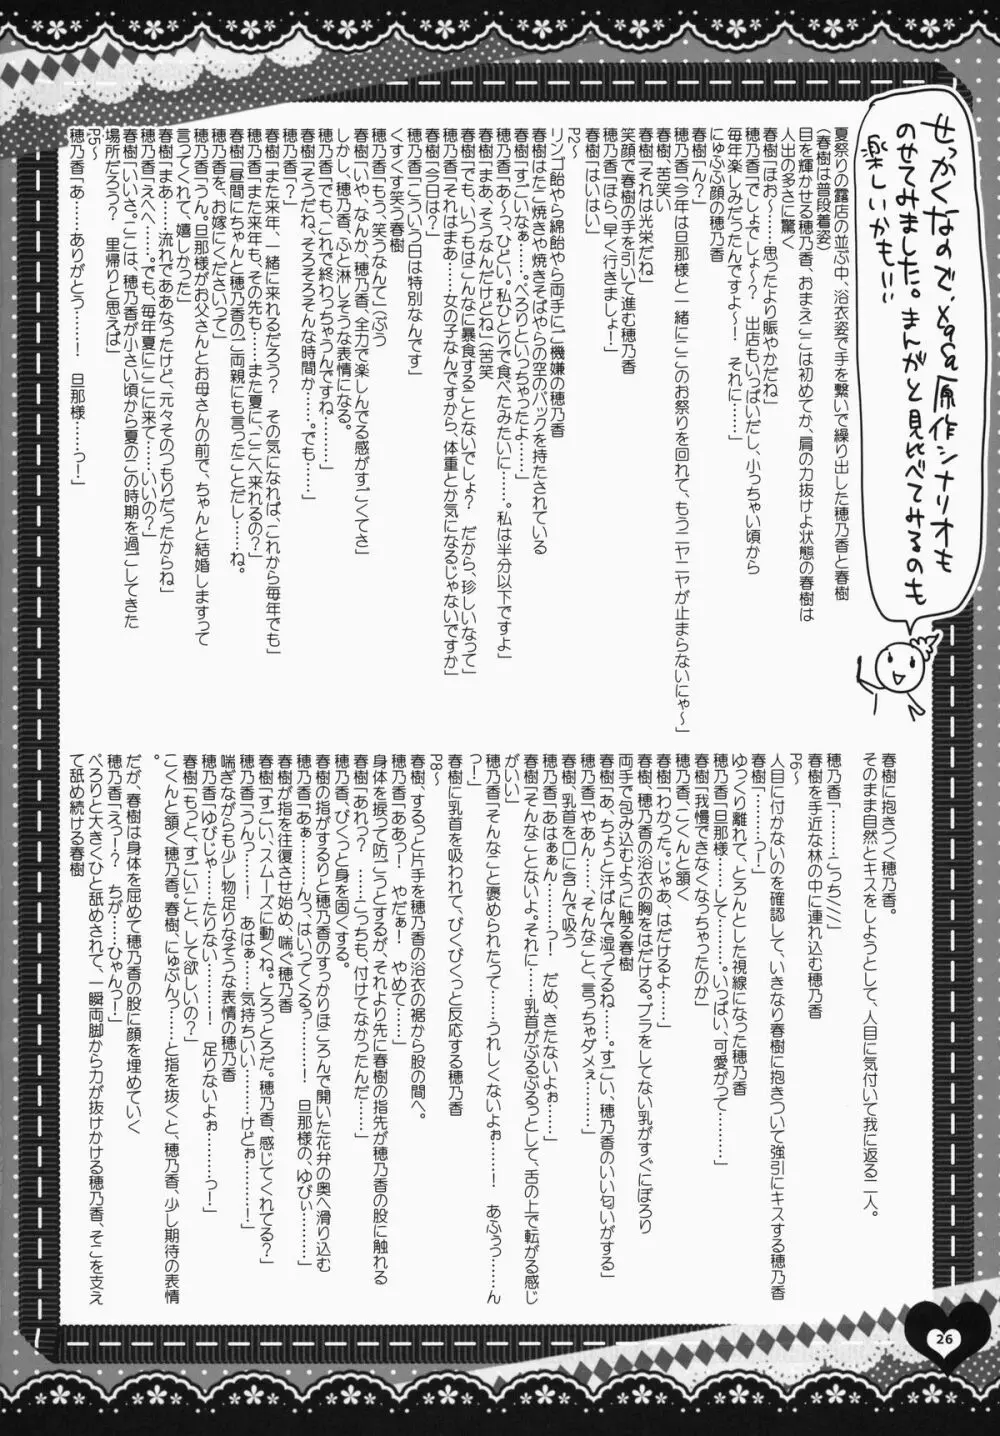 せっかくなので、xga原作シナリオも
のせてみました。まんがと見比べてみるのも
楽しいかも!!
夏祭りの露店の並ぶ中、浴衣姿で手を繋いで繰り出した穂乃香と春樹
(春樹は普段着姿)
目を輝かせる穂乃香、おまえここは初めてか、肩の力抜けよ状態の春樹は
人出の多さに驚く
春樹「ほお～……思ったより賑やかだね」
穂乃香「でしょでしょ～? 出店もいっぱいだし、小っちゃい頃から
毎年楽しみだったんですよ～! それに……」
にゅふふ顔の穂乃香
春樹「ん?」
穂乃香「今年は旦那様と一緒にここのお祭りを回れて、もうニヤニヤが止まらないにゃ～」
春樹、苦笑い
春樹「それは光栄だね」
笑顔で春樹の手を引いて進む穂乃香
穂乃香「ほら、早く行きましょ～!」
春樹「はいはい」
P2～
リンゴ飴やら綿飴やら両手にご機嫌の穂乃香
春樹はたこ焼きや焼きそばやらの空のパックを持たされている
春樹「すごいなぁ……ぺろりといっちゃったよ……」
穂乃香「あ～っ、ひどい。私ひとりで食べたみたいに……。私は半分以下ですよ」
春樹「まあ、そうなんだけどね」苦笑
春樹「でも、いつもはこんなに暴食することないでしょ? だから、珍しいなって」
穂乃香「それはまあ……女の子なんですから、体重とか気になるじゃないですか」
春樹「今日は?」
穂乃香「こういう日は特別なんです」
くすくす笑う春樹
穂乃香「もう、笑うなんて」(ぷう
春樹「いや、なんか、穂乃香、全力で楽しんでる感がすごくてさ」
しかし、穂乃香、ふと淋しそうな表情になる。
穂乃香「でも、これで終わっちゃうんですね………」
春樹「そうだね、そろそろそんな時間か……。でも……」
穂乃香「?」
春樹「また来年、一緒に来れるだろう? その気になれば、これから毎年でも」
穂乃香「また来年も、その先も……また夏に、ここへ来れるの?」
春樹「昼間にちゃんと穂乃香のご両親にも言ったことだし……ね。
穂乃香を、お嫁にくださいって」
穂乃香「うん。旦那様がお父さんとお母さんの前で、ちゃんと結婚しますって
言ってくれて、嬉しかった」
春樹「まあ……流れでああなったけど、元々そのつもりだったからね」
穂乃香「えへへ……。でも、毎年夏にここに来て……いいの?」
春樹「いいさ。ここは、穂乃香が小さい頃から夏のこの時期を過ごしてきた
場所だろう? 里帰りと思えば」
P5～
穂乃香「あ……ありがとう……! 旦那様……っ!」
春樹に抱きつく穂乃香。
そのまま自然とキスをしようとして、人目に気付いて我に返る二人。
穂乃香「………こっち///」
春樹を手近な林の中に連れ込む穂乃香
P6～
人目に付かないのを確認して、いきなり春樹に抱きついて強引にキスする穂乃香
春樹「………っ!」
ゆっくり離れて、とろんとした視線になった穂乃香
穂乃香「旦那様……して……。いっぱい、可愛がって……」
春樹「我慢できなくなっちゃったのか」
穂乃香、こくんと頷く
春樹「わかった。じゃあ、はだけるよ……」
春樹、穂乃香の浴衣の胸をはだける。ブラをしてない乳がすぐにぽろり
両手で包み込むように触る春樹
春樹「あ、ちょっと汗ばんで湿ってるね……。すごい、穂乃香のいい匂いがする」
穂乃香「やあん……そんなこと、言っちゃダメぇ………」
春樹、乳首を口に含んで吸う
穂乃香「あはぁぁん………っ! だめ、きたないよぉ……」
春樹「そんなことないよ。それに……乳首がぷるぷるっとして、舌の上で転がる感じ
がいい」
穂乃香「そんなこと褒められたって……うれしくないよぉ……! あふぅっ……ん
っ!」
春樹に乳首を吸われて、びくびくっと反応する穂乃香
P8～
春樹、するっと片手を穂乃香の浴衣の裾から股の間へ。
穂乃香「ああっ! やだぁ! やめて……」
身体を捩って防ごうとするが、それより先に春樹の指先が穂乃香の股に触れる
春樹「あれっ? ……こっちも、付けてなかったんだ……」
穂乃香、びくっと身を固くする。
春樹の指がするりと穂乃香のすっかりほころんで開いた花弁の奥へ滑り込む
穂乃香「あぁ………んっ、はいってくるぅ……! 旦那様の、ゆびぃ………」
春樹が指を往復させ始め、喘ぐ穂乃香
春樹「すごい、スムーズに動くね。とろっとろだ。穂乃香、感じてくれてる?」
穂乃香「うんっ……! あはぁ……気持ちいい………けどぉ………!」
喘ぎながらも少し物足りなそうな表情の穂乃香
穂乃香「ゆびじゃ……たりない………! 足りないよぉ……っ!」
春樹「もっと、すごいこと、して欲しいの?」
こくんと頷く穂乃香。春樹、にゅぷんっ……と指を抜くと、穂乃香、少し期待の表情
。
だが、春樹は身体を屈めて穂乃香の股に顔を埋めていく
穂乃香「えっ!? ちが……ひゃんっ!」
ぺろりと大きくひと舐めされて、一瞬両脚から力が抜けかける穂乃香、そこを支え
て舐め続ける春樹
26